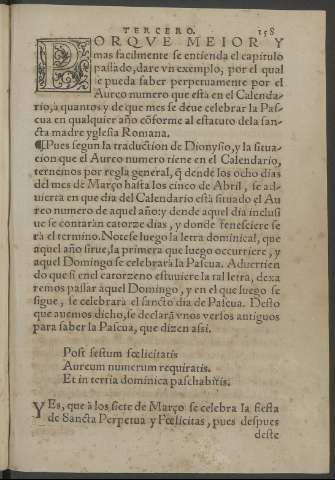 TERCERO. 158
PORQVE MEIOR Y
mas facilmente se entienda el capitulo
passado, dare vn exemplo, por el qual
se pueda saber perpetuamente por el
Aureo numero que està en el Calenda-
rio, a quantos y de que mes se deue celebrar la Pas-
cua en qualquier año cõforme al estatuto dela san-
cta madre yglesia Romana.
¶Pues segun la traduction de Dionysio, y la situa-
cion que el Aureo numero tiene en el Calendario,
ternemos por regla general, q̃ dende los ocho dias
del mes de Março hasta los cinco de Abril, se ad-
uierta en que dia del Calendario està situado el Au
reo numero de aquel año: y dende aquel dia inclusi
ue se contaràn catorze dias, y donde fenesciere se
rà el termino. Notese luego la letra dominical, que
aquel año sirue, la primera que luego occurriere, y
aquel Domingo se celebrarà la Pascua. Aduertien
do que si enel catorzeno estuuiere la tal letra, dexa
remos passar aquel Domingo, y en el que luego se
sigue, se celebrarà el sancto dia de Pascua. Desto
que auemos dicho, se declarã vnos versos antiguos
para saber la Pascua, que dizen assi.
Post festum fœlicitatis
Aureum numerum requiratis.
Et in terria dominica paschabitis.
Y Es, que à los siete de Março se celebra la fiesta
de Sancta Perpetua y Fœlicitas, pues despues
deste